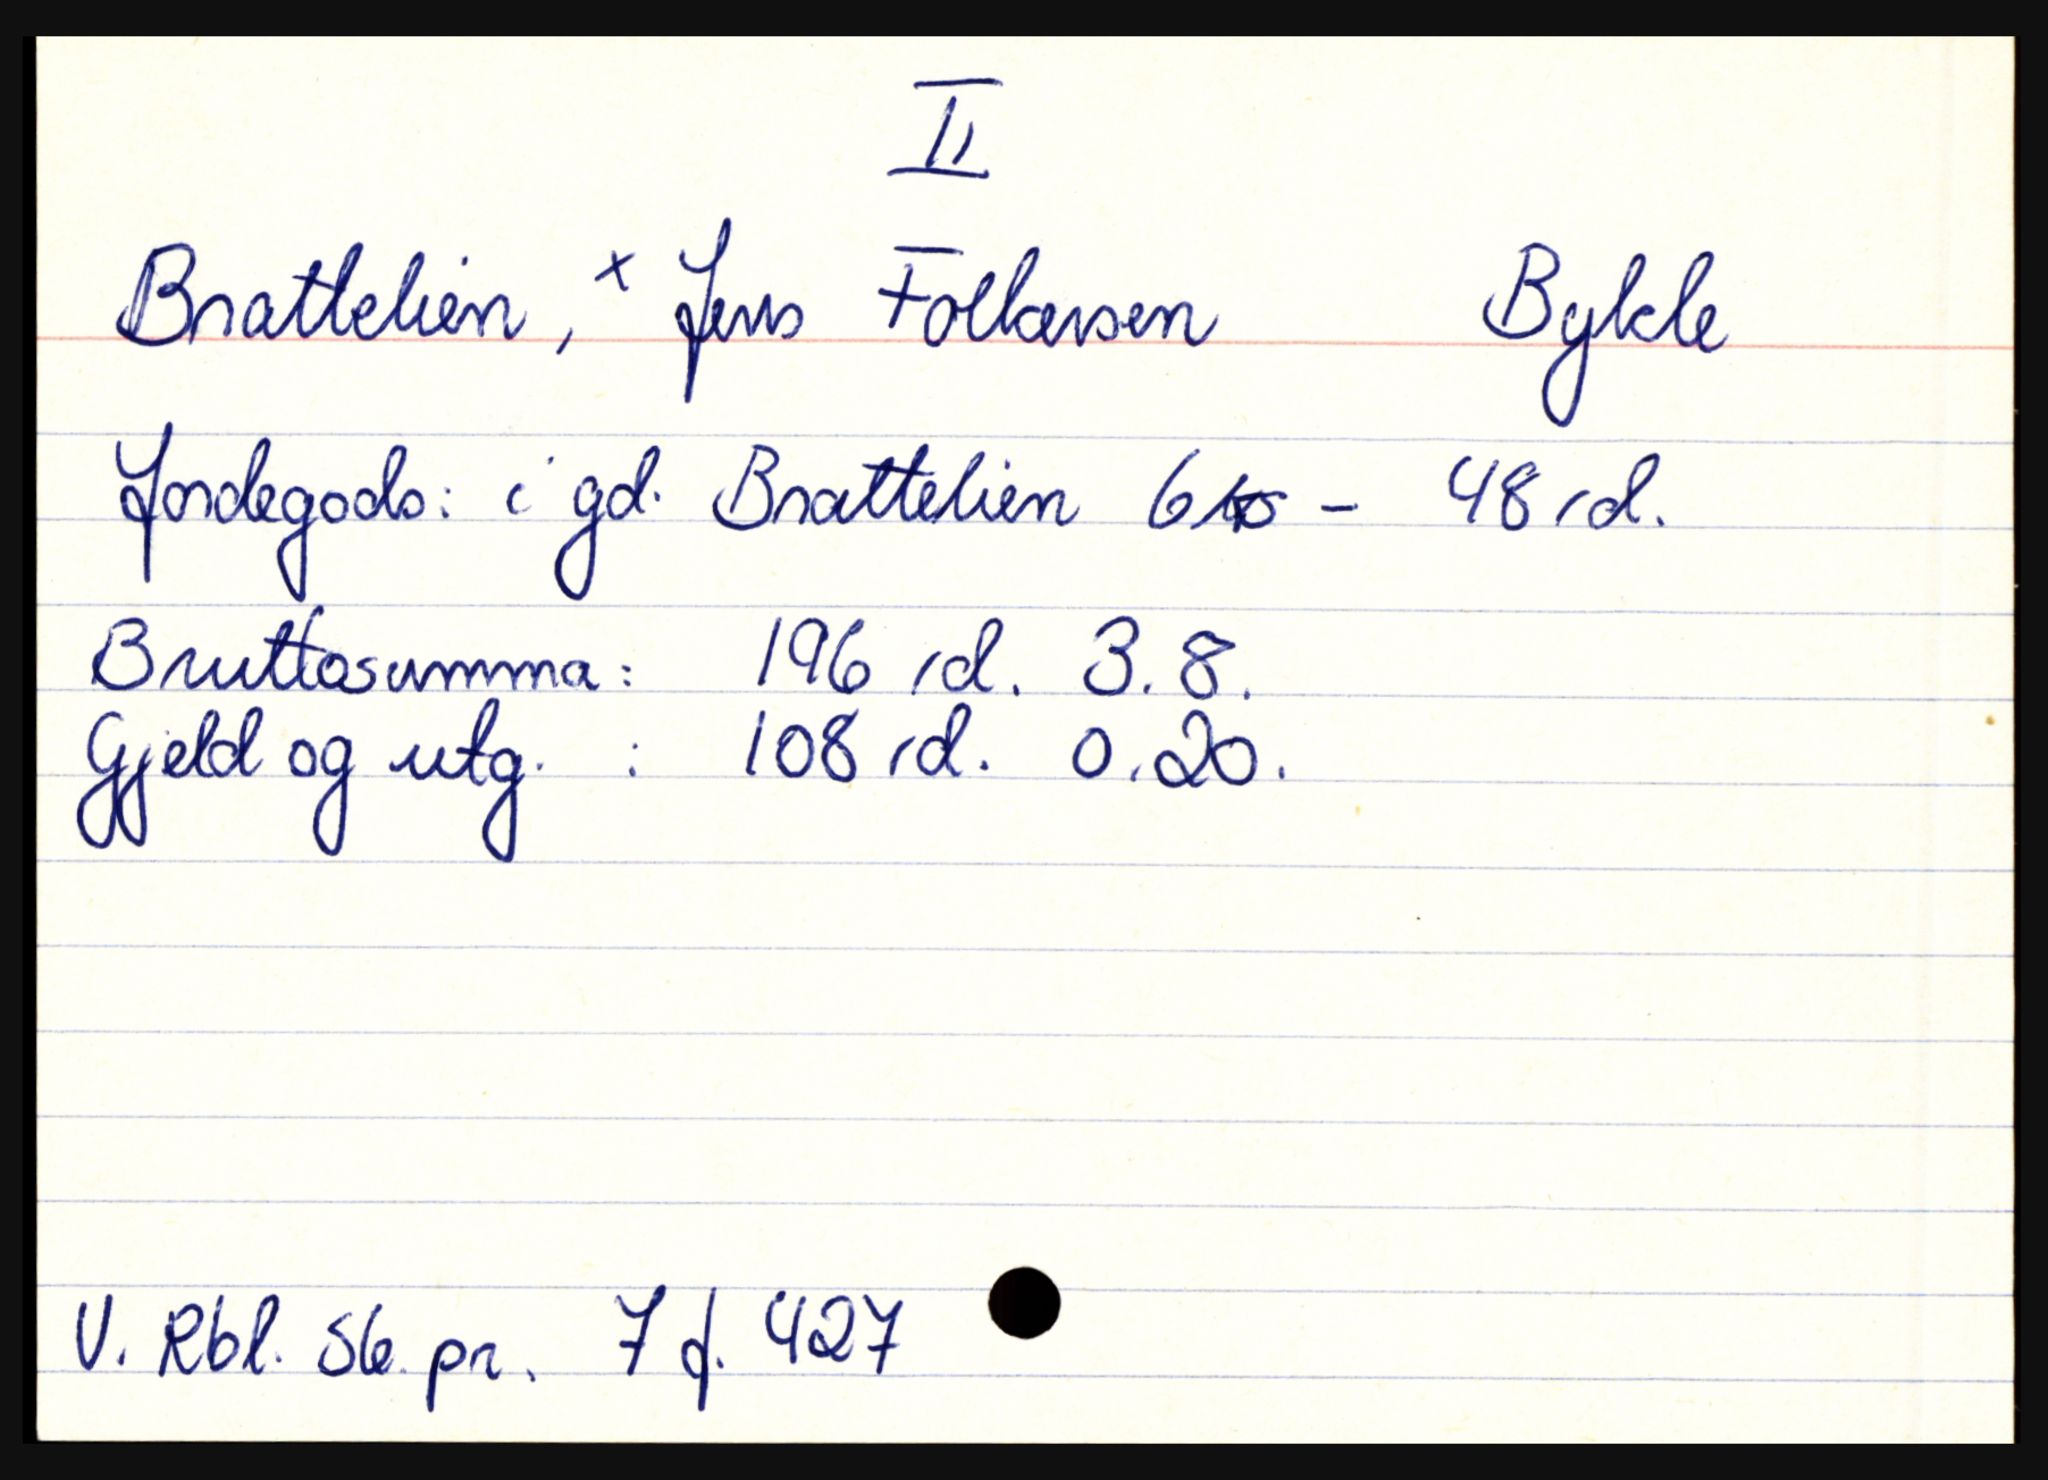 II
Brattelien, x Jens Folkersen Bykle
Jordegods: i gd. Brattelien 6 - 48 rd.
Bruttosumma: 196 rd. 3.8.
Gjeld og utg. : 108 rd. 0.20.
V. Rbl. Sk. pr. 7 f. 427